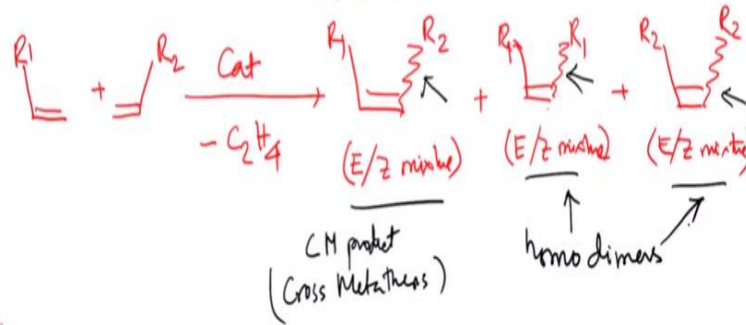 R1 + R2 Cat R1 R2 + R1 R1 + R2 R2
- C2H4
(E/Z mixture) (E/Z mixture) (E/Z mixture)
CM product
(Cross Metathesis)
homodimers